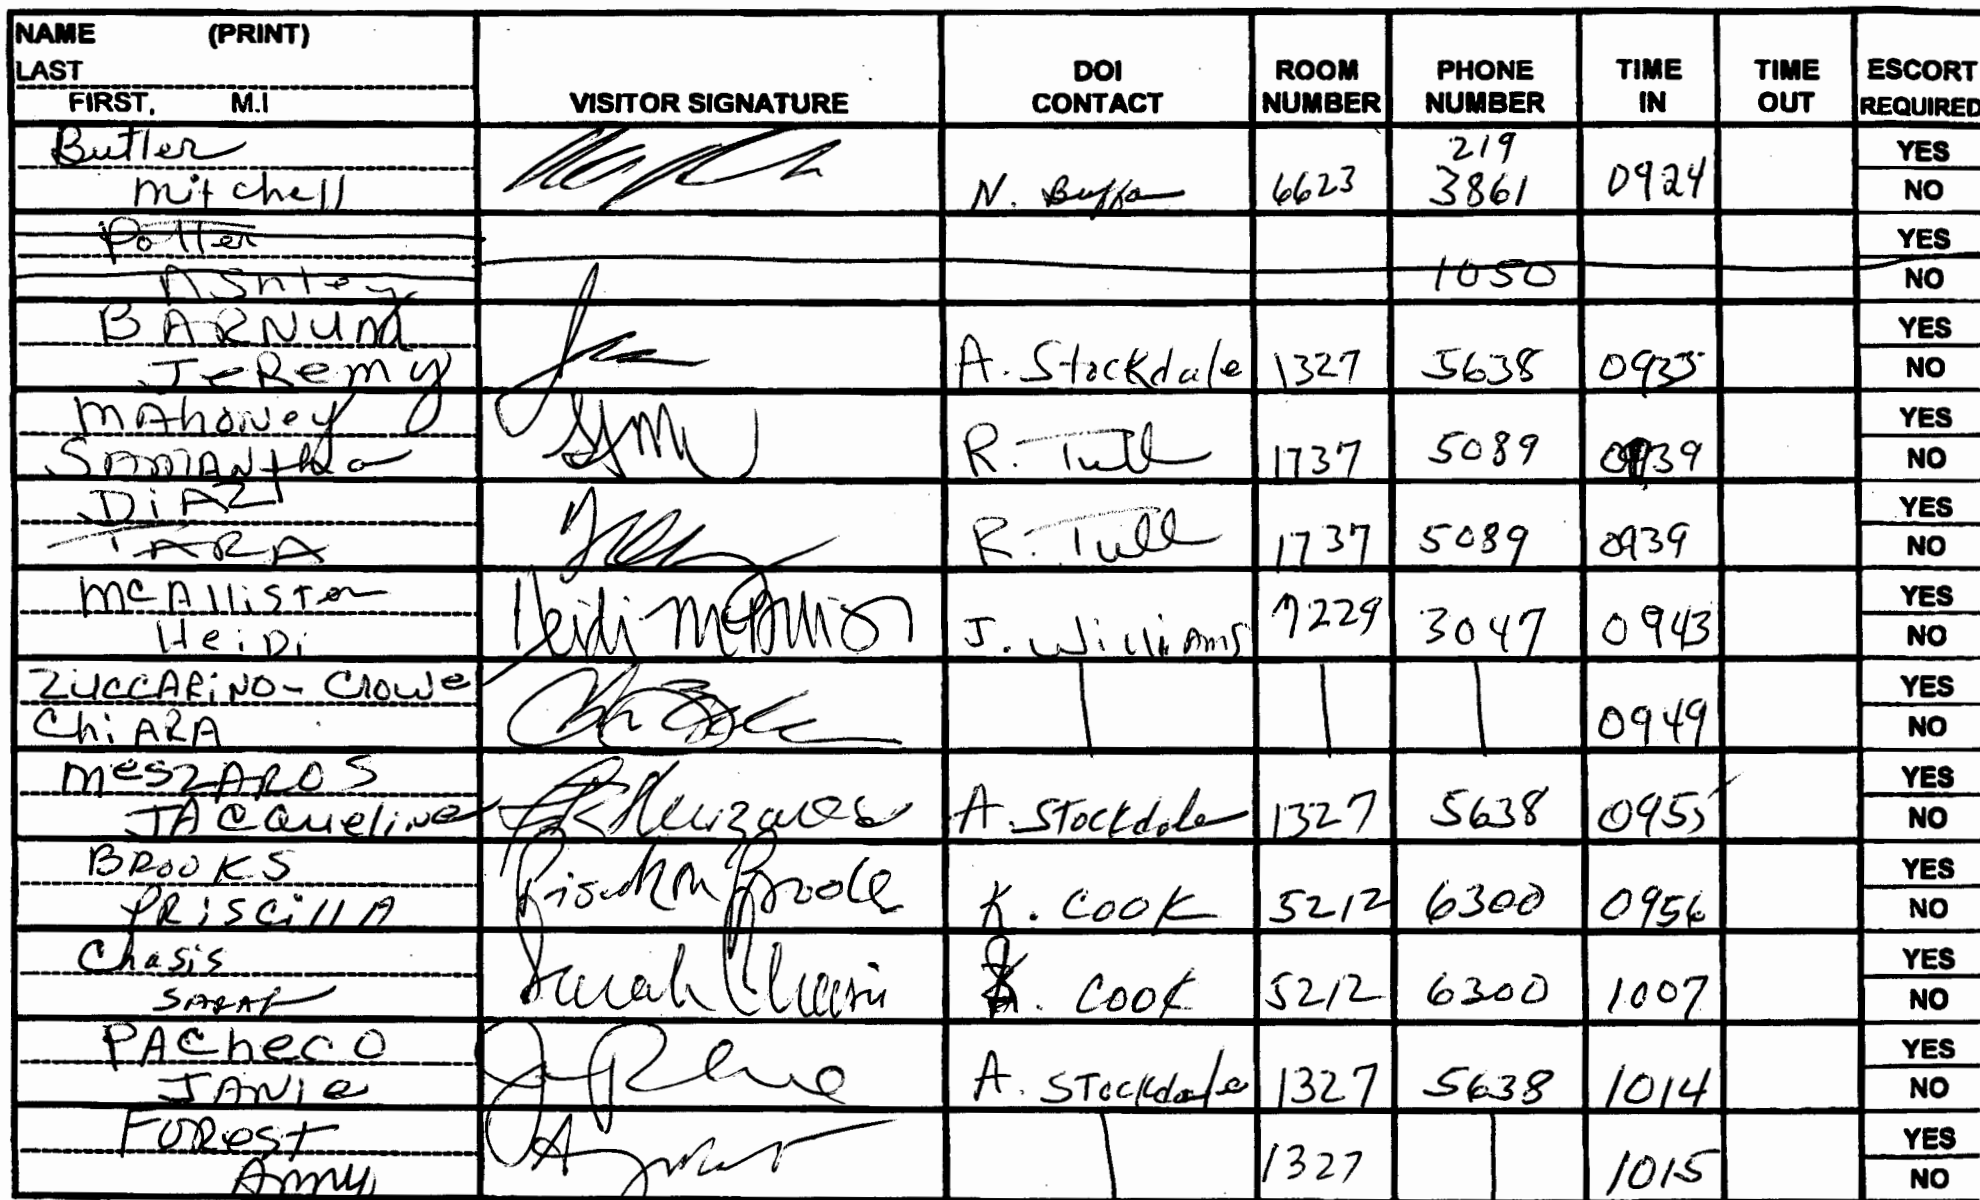 NAME (PRINT)
LAST
FIRST, M.I
VISITOR SIGNATURE
DOI CONTACT
ROOM NUMBER
PHONE NUMBER
TIME IN
TIME OUT
ESCORT REQUIRED
Butler
Mitchell
N. Buffa 6623 219 3861 0924
YES
NO
Potter
Ashley
1050
YES
NO
BARNUM
JeRemy
A. Stockdale 1327 5638 0935
YES
NO
MAhoNey
SAMANtha
R. Tull 1737 5089 0939
YES
NO
DiAZ
TARA
R. Tull 1737 5089 0939
YES
NO
McAllister
HeiDi
Heidi McAllister
J. WilliAms 7229 3047 0943
YES
NO
ZUCCARiNO-Crowe
ChiARA
0949
YES
NO
MeSZAROS
JACqueline
A. Stockdale 1327 5638 0955
YES
NO
BROOKS
PRiSCillA
Priscilla Brooks
K. COOK 5212 6300 0956
YES
NO
Chasis
SARAh
Sarah Chasis
K. COOK 5212 6300 1007
YES
NO
PACheCO
JANie
A. Stockdale 1327 5638 1014
YES
NO
FORest
Amy
1327 1015
YES
NO